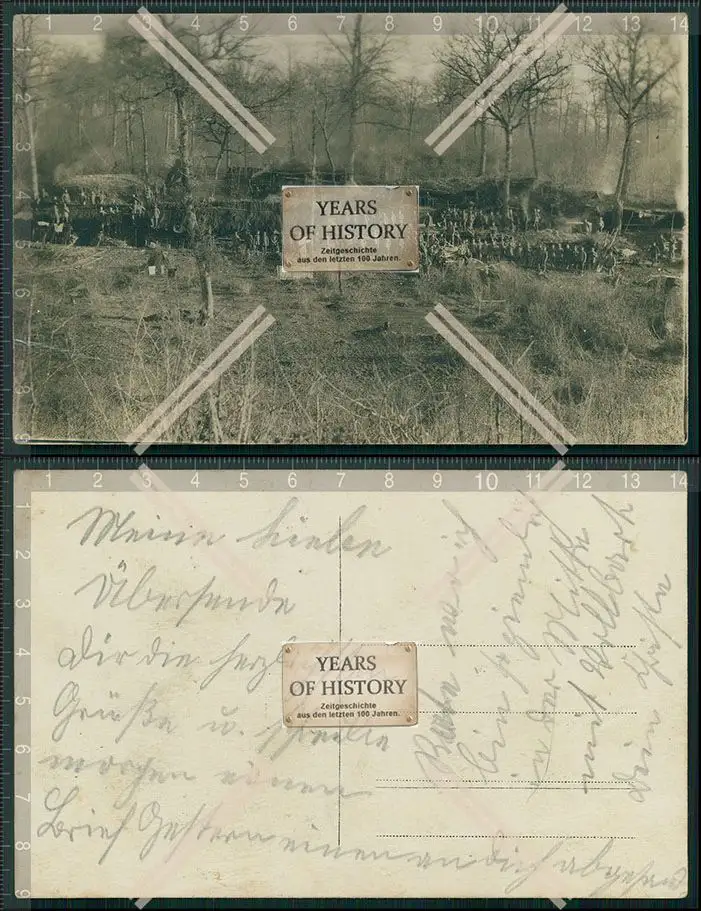 1 2 3 4 5 6 7 8 9 10 11 12 13 14
1 2 3 4 5 6 7 8
YEARS
OF HISTORY
Zeitgeschichte
aus den letzten 100 Jahren.
1 2 3 4 5 6 7 8 9 10 11 12 13 14
1 2 3 4 5 6 7 8 9
Meine Lieben
Übersende
Dir die
Grüße u.
morgen einen
Brief Gestern einen an Dich
YEARS
OF HISTORY
Zeitgeschichte
aus den letzten 100 Jahren.
bin ziemlich
in der Mitte
mit Vollbart
Dein